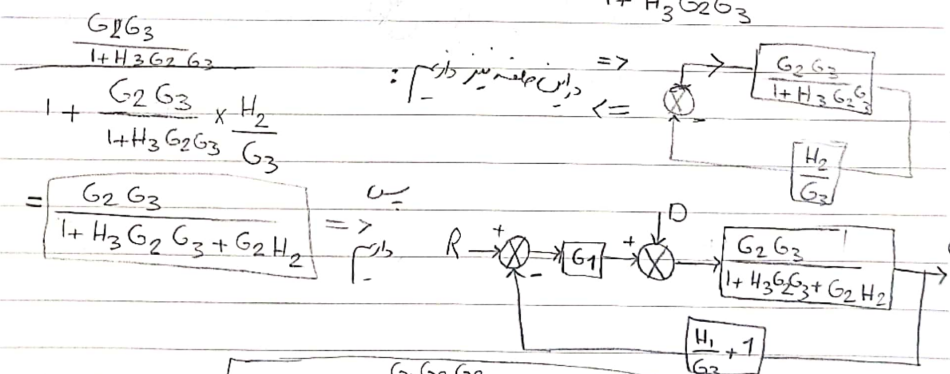 1 + H3 G2 G3
G2G3 / 1+H3 G2 G3
1 + G2 G3 / 1+H3G2G3 × H2 / G3
در این حلقه نیز داریم :
=>
<=
G2 G3 / 1+H3 G2G3
-
H2 / G3
= G2 G3 / 1+ H3 G2 G3 + G2 H2 =>
پس
داریم
R + - G1 + D G2 G3 / 1+ H3G2G3 + G2 H2
H1 / G3 + 1